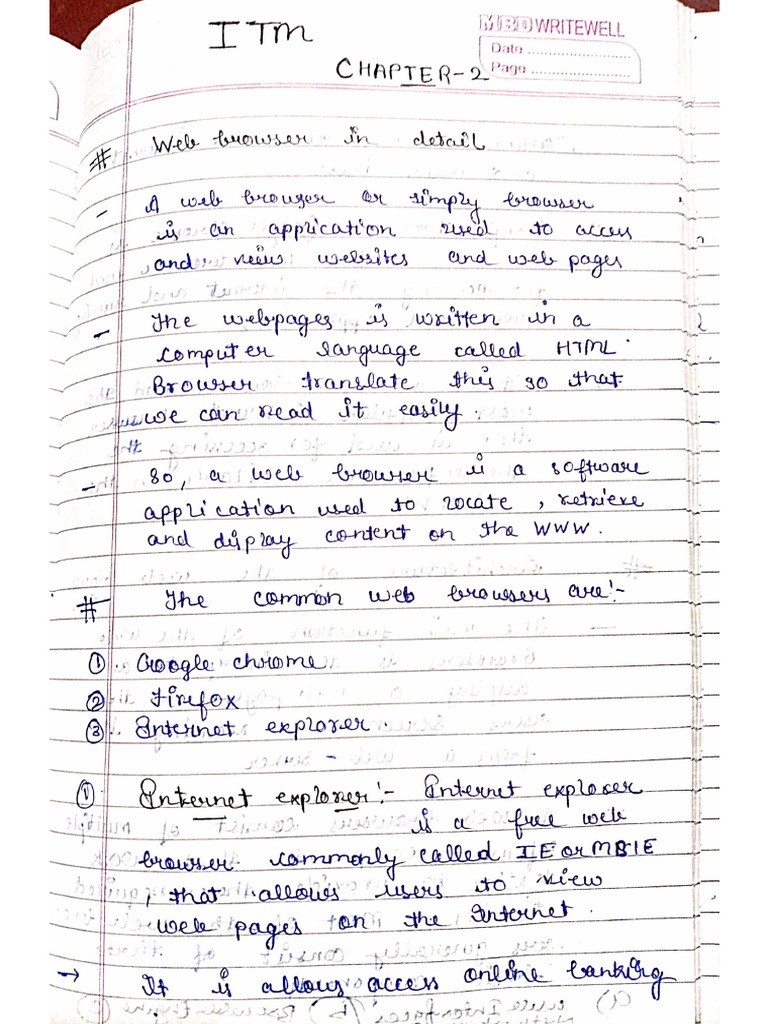 ITM
MBD WRITEWELL
Date
Page
CHAPTER-2
# Web browser in detail
- A web browser or simply browser
is an application used to access
and view websites and web pages
- The webpages is written in a
computer language called HTML.
Browser translate this so that
we can read it easily.
- So, a web browser is a software
application used to locate, retrieve
and display content on the WWW.
# The common web browsers are:-
① Google chrome
② Firefox
③ Internet explorer.
① Internet explorer:- Internet explorer
is a free web
browser commonly called IE or MSIE
, that allows users to view
web pages on the Internet.
→ It is allows access online banking